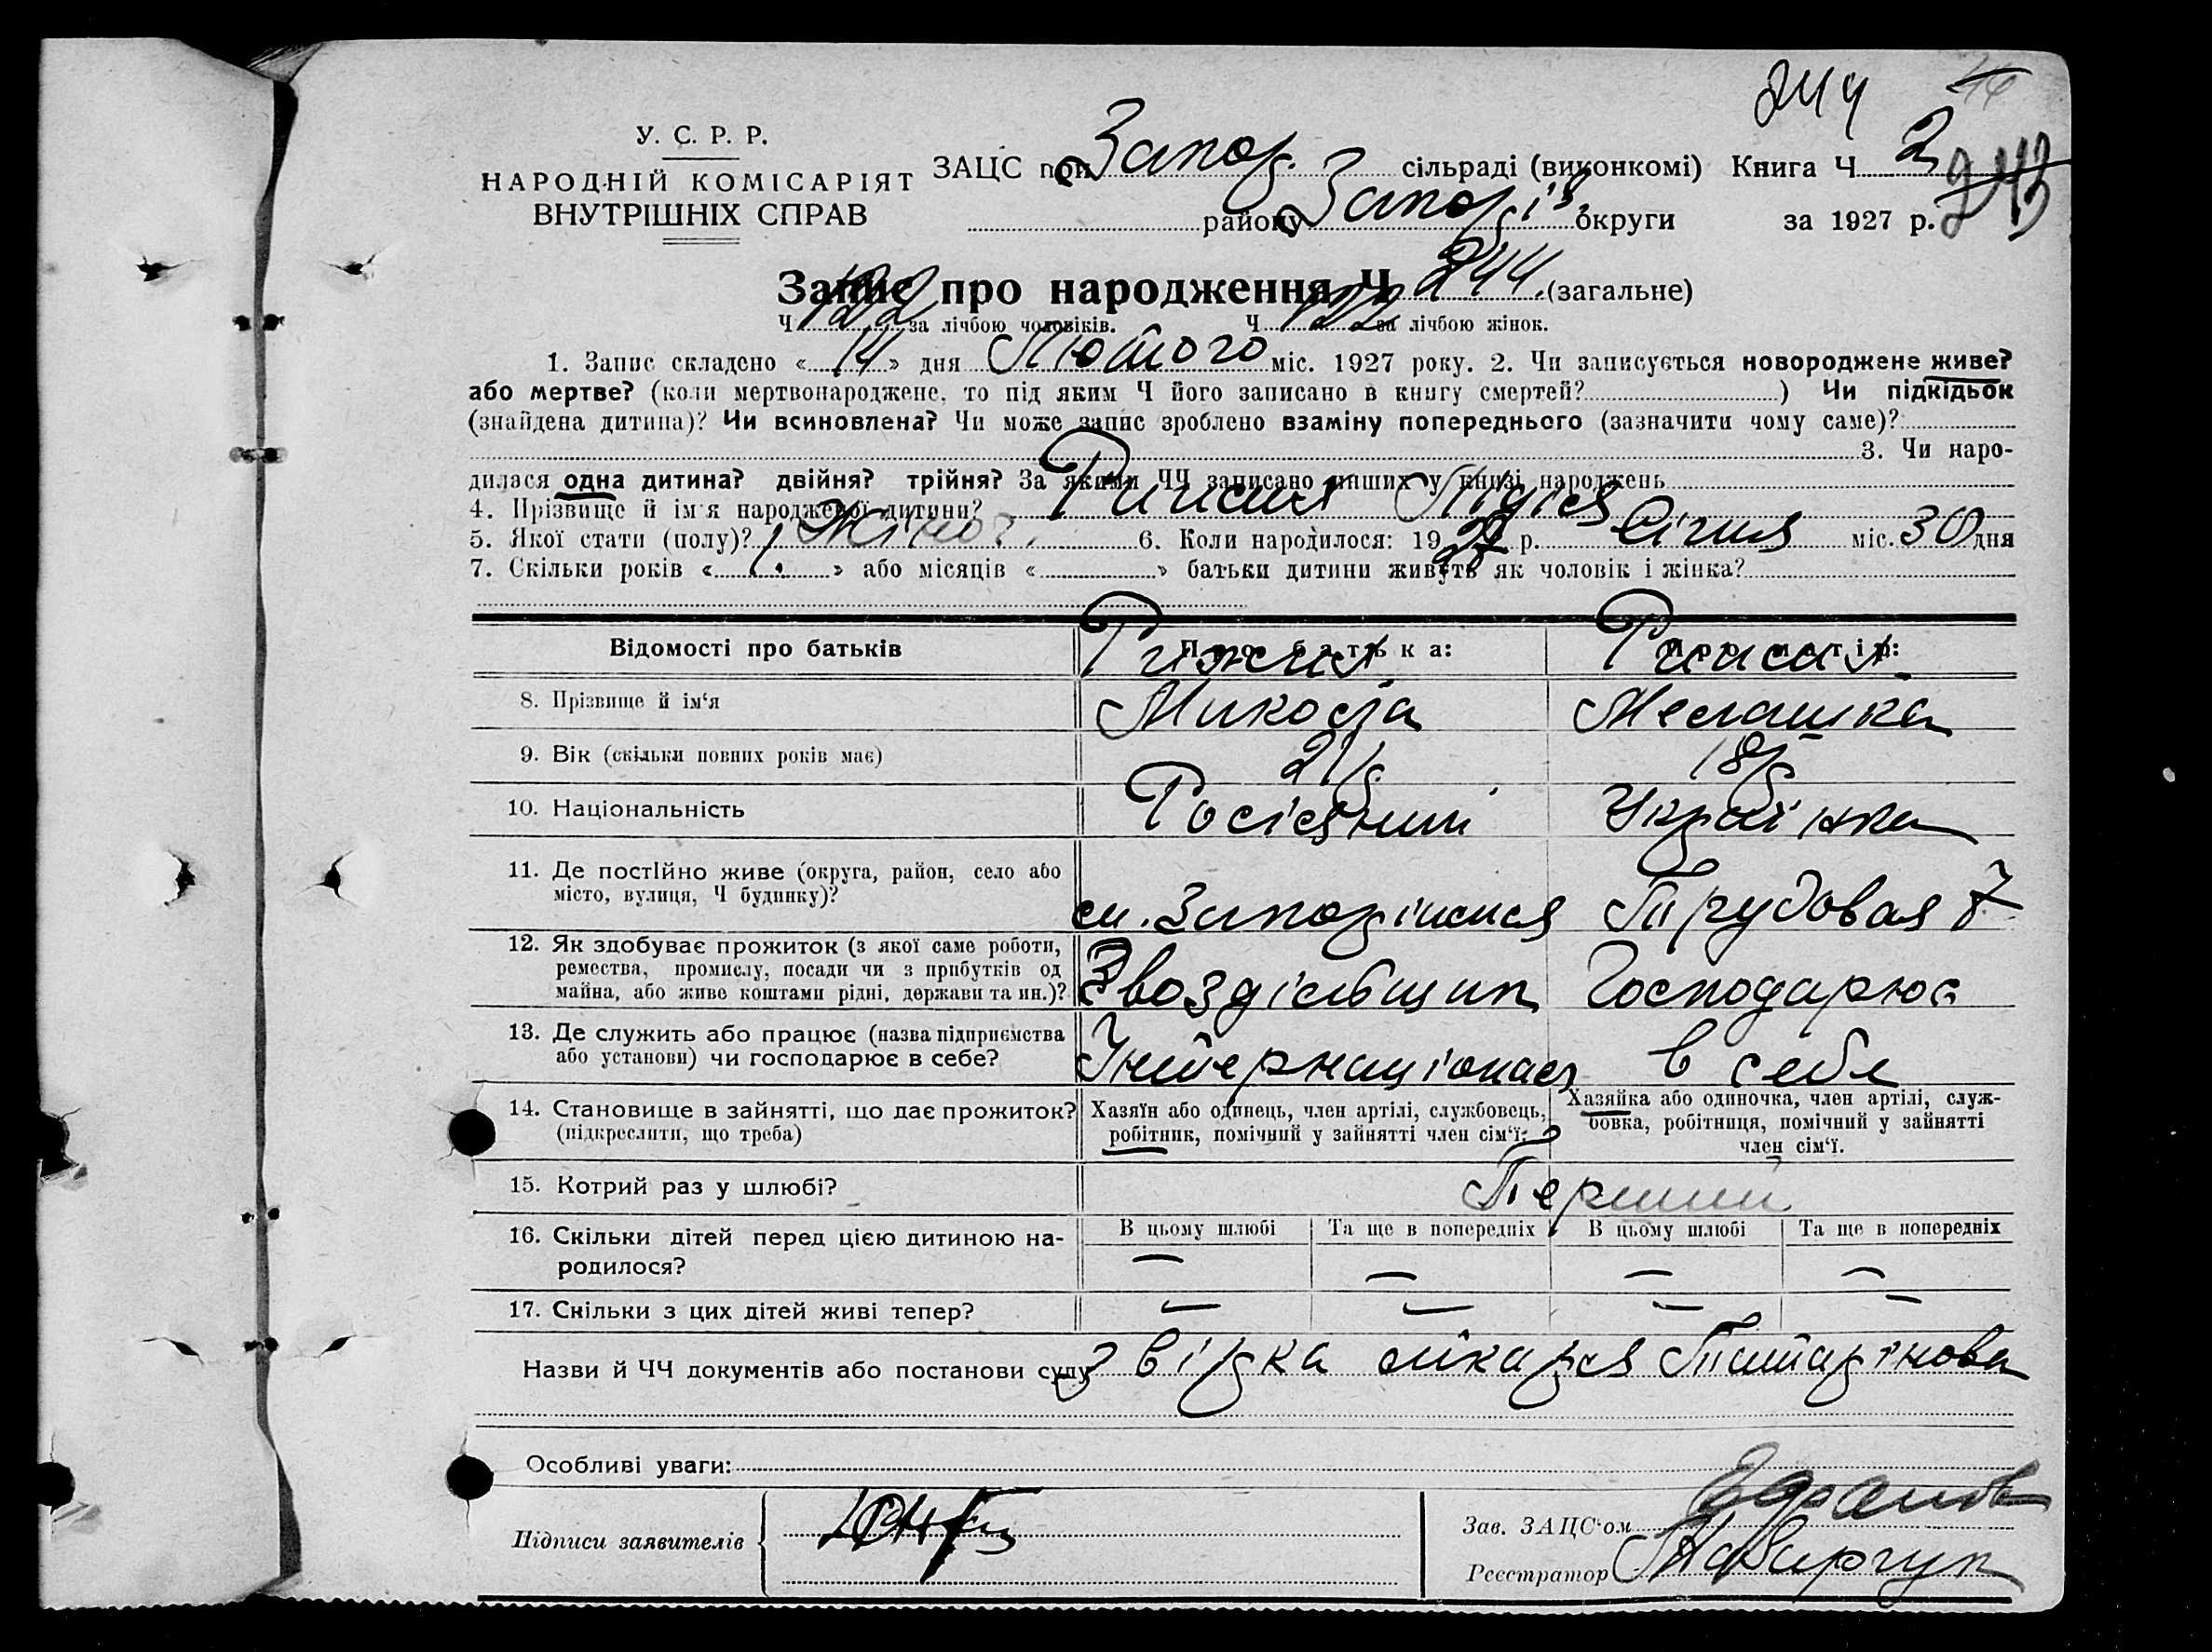 244
У. С. Р. Р.
НАРОДНІЙ КОМІСАРІЯТ
ВНУТРІШНІХ СПРАВ
ЗАЦС при Запор. сільраді (виконкомі) Книга Ч 2
243
району Запоріз. округи за 1927 р.
Запис про народження Ч 244 (загальне)
Ч 122 за лічбою чоловіків. Ч 122 за лічбою жінок.
1. Запис складено «14» дня Лютого міс. 1927 року. 2. Чи записується новороджене живе?
або мертве? (коли мертвонароджене, то під яким Ч його записано в книгу смертей? ) Чи підкідьок
(знайдена дитина)? Чи всиновлена? Чи може запис зроблено взаміну попереднього (зазначити чому саме)?
3. Чи наро-
дилася одна дитина? двійня? трійня? За якими ЧЧ записано инших у книзі народжень
4. Прізвище й ім'я народженої дитини? Лідія
5. Якої статі (полу)? Жіноч. 6. Коли народилося: 1927 р. Січня міс. 30 дня
7. Скільки років « 1. » або місяців « » батьки дитини живуть як чоловік і жінка?
Відомості про батьків Про батька: Про матір:
8. Прізвище й ім'я Микола Мелашка
9. Вік (скільки повних років має) 21 р. 18 р.
10. Національність Українка
11. Де постійно живе (округа, район, село або
місто, вулиця, Ч будинку)? Трудовая 7
12. Як здобуває прожиток (з якої саме роботи,
ремества, промислу, посади чи з прибутків од
майна, або живе коштами рідні, держави та ин.)? Гвоздільщик Господарює
13. Де служить або працює (назва підприємства
або установи) чи господарює в себе? Інтернаціонал в себе
14. Становище в зайнятті, що дає прожиток?
(підкреслити, що треба)
Хазяїн або одинець, член артілі, службовець,
робітник, помічний у зайнятті член сім'ї.
Хазяйка або одиночка, член артілі, служ-
бовка, робітниця, помічний у зайнятті
член сім'ї.
15. Котрий раз у шлюбі? Перший
16. Скільки дітей перед цією дитиною на-
родилося?
В цьому шлюбі Та ще в попередніх В цьому шлюбі Та ще в попередніх
— — — —
17. Скільки з цих дітей живі тепер? — — — —
Назви й ЧЧ документів або постанови суду Звірка лікаря
Особливі уваги:
Підписи заявителів
Зав. ЗАЦС'ом
Реєстратор